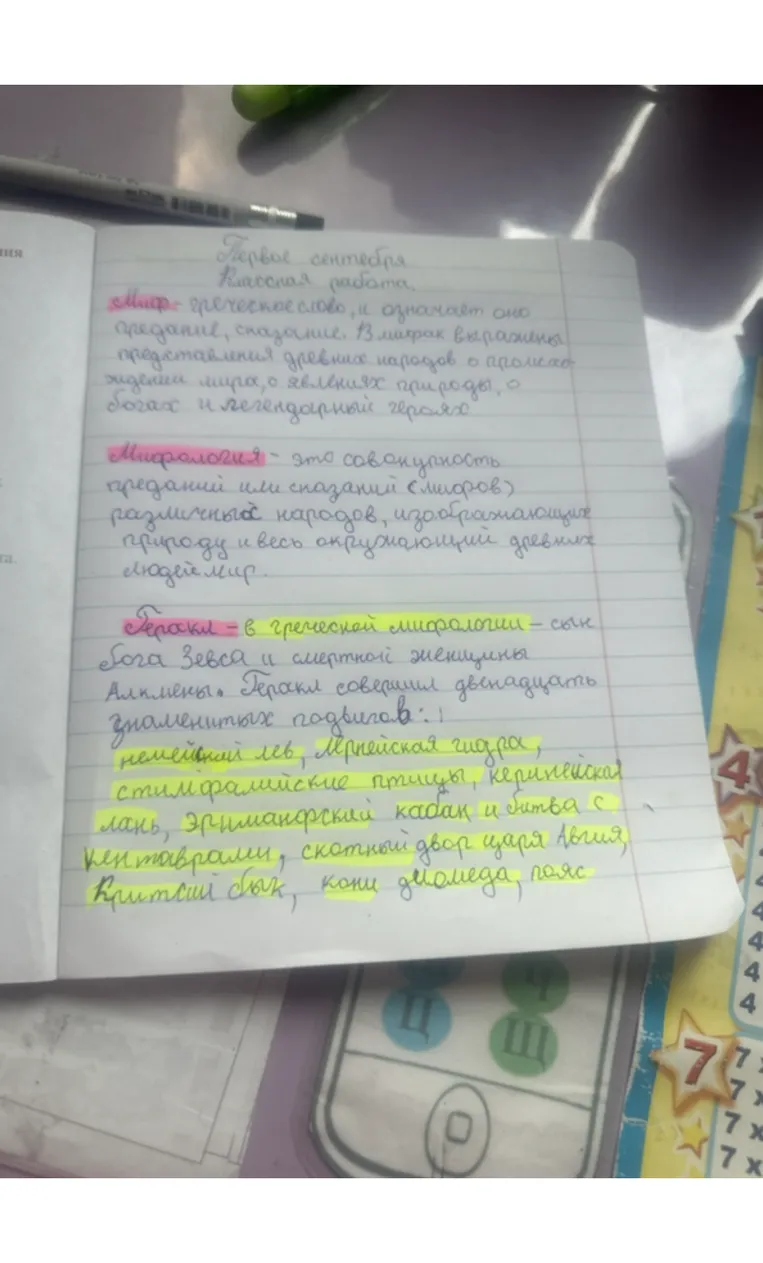 ния
та.
Первое сентебря
Классная работа.
Миф- греческое слово, и означает оно
предание, сказание. В мифах выражены
представления древних народов о происхо-
ждении мира, о явлениях природы, о
богах и легендарный героях
Мифология - это совокупность
преданий или сказаний (мифов)
различных народов, изображающих
природу и весь окружающий древних
людей мир.
Геракл - в греческой мифологии - сын
бога Зевса и смертной женщины
Алкмены. Геракл совершил двенадцать
знаменитых подвигов:
немейский лев, лернейская гидра,
стимфалийские птицы, керинейская
лань, эриманфский кабан и битва с
кентаврами, скотный двор царя Авгия,
Критсий бык, кони диомеда, пояс
Ц
Ч
Щ
4
4
4
4
4
7
7 x
7 x
7 x
7 x